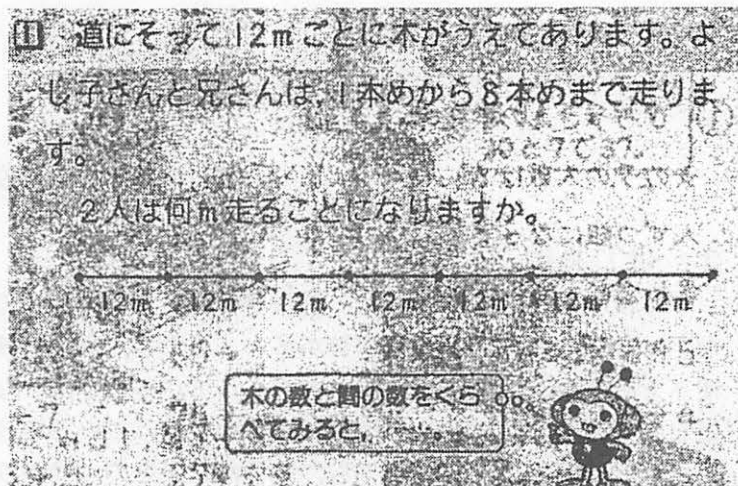 1 道にそって12mごとに木がうえてあります。よ
し子さんと兄さんは,1本めから8本めまで走りま
す。
2人は何m走ることになりますか。
12m 12m 12m 12m 12m 12m 12m
木の数と間の数をくら
べてみると,……。